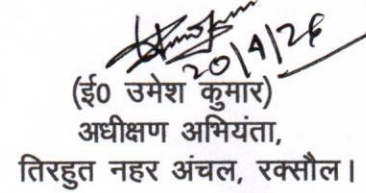 20/4/26
(ई0 उमेश कुमार)
अधीक्षण अभियंता,
तिरहुत नहर अंचल, रक्सौल।